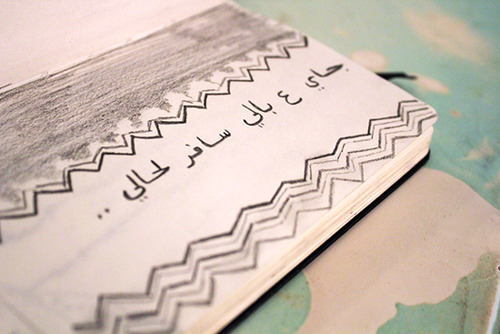 جاي ع بالي سافر لحالي ..